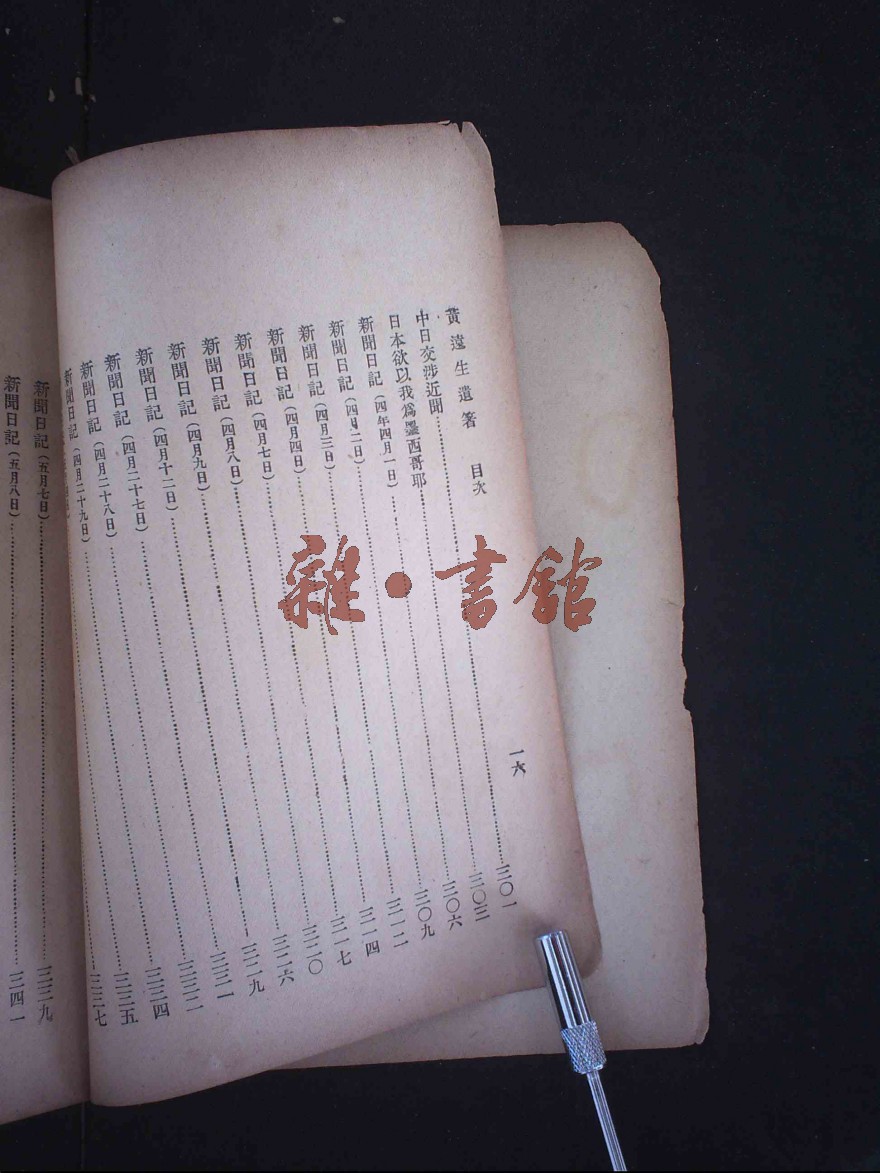 黃遠生遺箸 目次
一六
中日交涉近聞
日本欲以我爲墨西哥耶
新聞日記(四年四月一日)
新聞日記(四月二日)
新聞日記(四月三日)
新聞日記(四月四日)
新聞日記(四月七日)
新聞日記(四月八日)
新聞日記(四月九日)
新聞日記(四月十二日)
新聞日記(四月二十七日)
新聞日記(四月二十八日)
新聞日記(四月二十九日)
新聞日記
三〇一
三〇三
三〇六
三〇九
三一二
三一四
三一七
三二〇
三二六
三二九
三三一
三三二
三三四
三三五
三三七
新聞日記(五月七日)…三三九
新聞日記(五月八日)…三四一
雜·書館